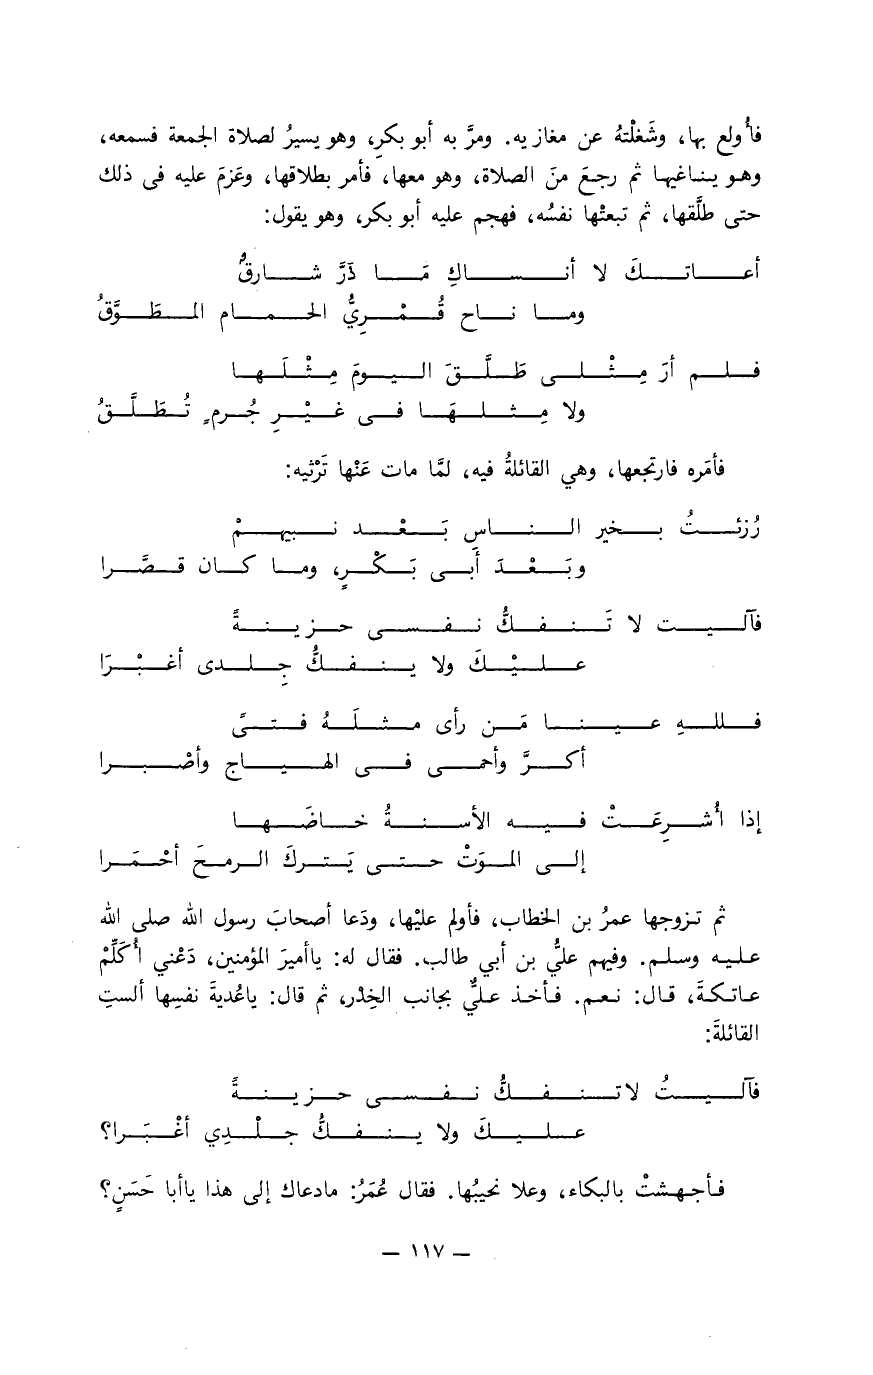 فأُولع بها، وشَغلْتهُ عن مغازيه. ومرَّ به أبو بكرٍ، وهو يسيرُ لصلاة الجمعة فسمعه،
وهو يناغيها ثم رجعَ منَ الصلاة، وهو معها، فأمر بطلاقها، وعَزمَ عليه فى ذلك
حتى طلَّقها، ثم تبعتْها نفسُه، فهجم عليه أبو بكر، وهو يقول:
أعاتكَ لا أنساكِ مَا ذَرَّ شارقٌ
وما ناح قُمْرِيُّ الحمام المطَوَّقُ
فلم أرَ مِثْلى طَلَّقَ اليومَ مِثْلَها
ولا مِثلهَا فى غيْرِ جُرمٍ تُطَلَّقُ
فأمَره فارتجعها، وهي القائلةُ فيه، لمَّا مات عَنْها تَرْثيه:
رُزئتُ بخير الناسِ بَعْد نبيهمْ
وبَعْدَ أَبى بَكْرٍ، وما كان قصَّرا
فآليت لا تَنفكُّ نفسى حزينةً
عليْكَ ولا ينفكُّ جِلدى أغبْرَا
فللهِ عينا مَن رأى مثلَهُ فتىً
أكرَّ وأحمى فى الهياج وأصْبرا
إذا أُشرِعَتْ فيه الأسنةُ خاضَها
إلى الموَتْ حتى يَتركَ الرمحَ أحْمَرا
ثم تزوجها عمرُ بن الخطاب، فأولم عليْها، ودَعا أصحابَ رسول الله صلى الله
عليه وسلم. وفيهم عليُّ بن أبي طالب. فقال له: ياأميرَ المؤمنين، دَعْني أُكَلِّمْ
عاتكةَ، قال: نعم. فأخذ عليٌّ بجانب الخِدْر، ثم قال: ياعُديةَ نفسِها ألستِ
القائلةَ:
فآليتُ لاتنفكُّ نفسى حزينةً
عليكَ ولا ينفكُّ جلْدِي أغْبَرا؟
فأجهشتْ بالبكاء، وعلا نحيبُها. فقال عُمَرُ: مادعاك إلى هذا ياأبا حَسَنٍ؟
— ١١٧ —